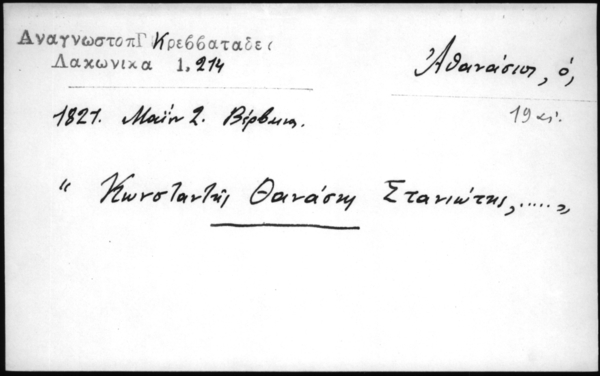 ΑναγνωστοπΓ Κρεββαταδες
Λακωνικα 1, 214
Ἀθανάσιος, ὁ,
1821. Μαΐου 2. Βέρβενα.
19 αἰ.
“ Κωνσταντῆς Θανάσης Στανιώτης, ..... „